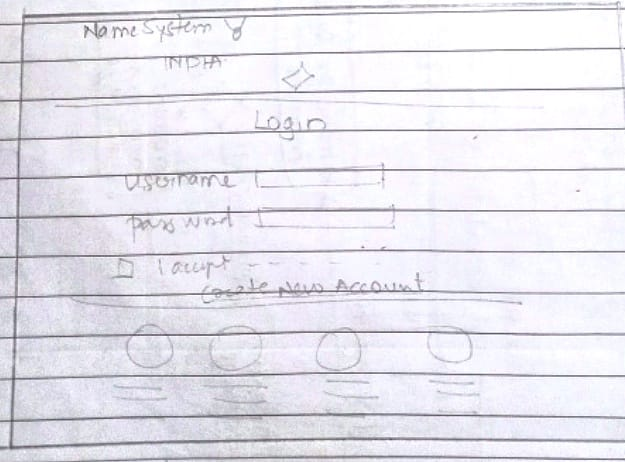 Name System
INDIA
Login
username
password
I accept
Create New Account